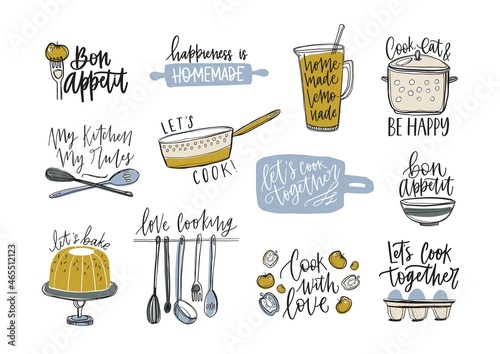 Bon
Appétit
happieness is
HOMEMADE
home
made
lemo
nade
Cook, eat &
BE HAPPY
My Kitchen
My Rules
LET'S
COOK!
let's cook
together
bon
appetit
let's bake
love cooking
Cook
with
love
Let's Cook
together
Adobe Stock | #465512123